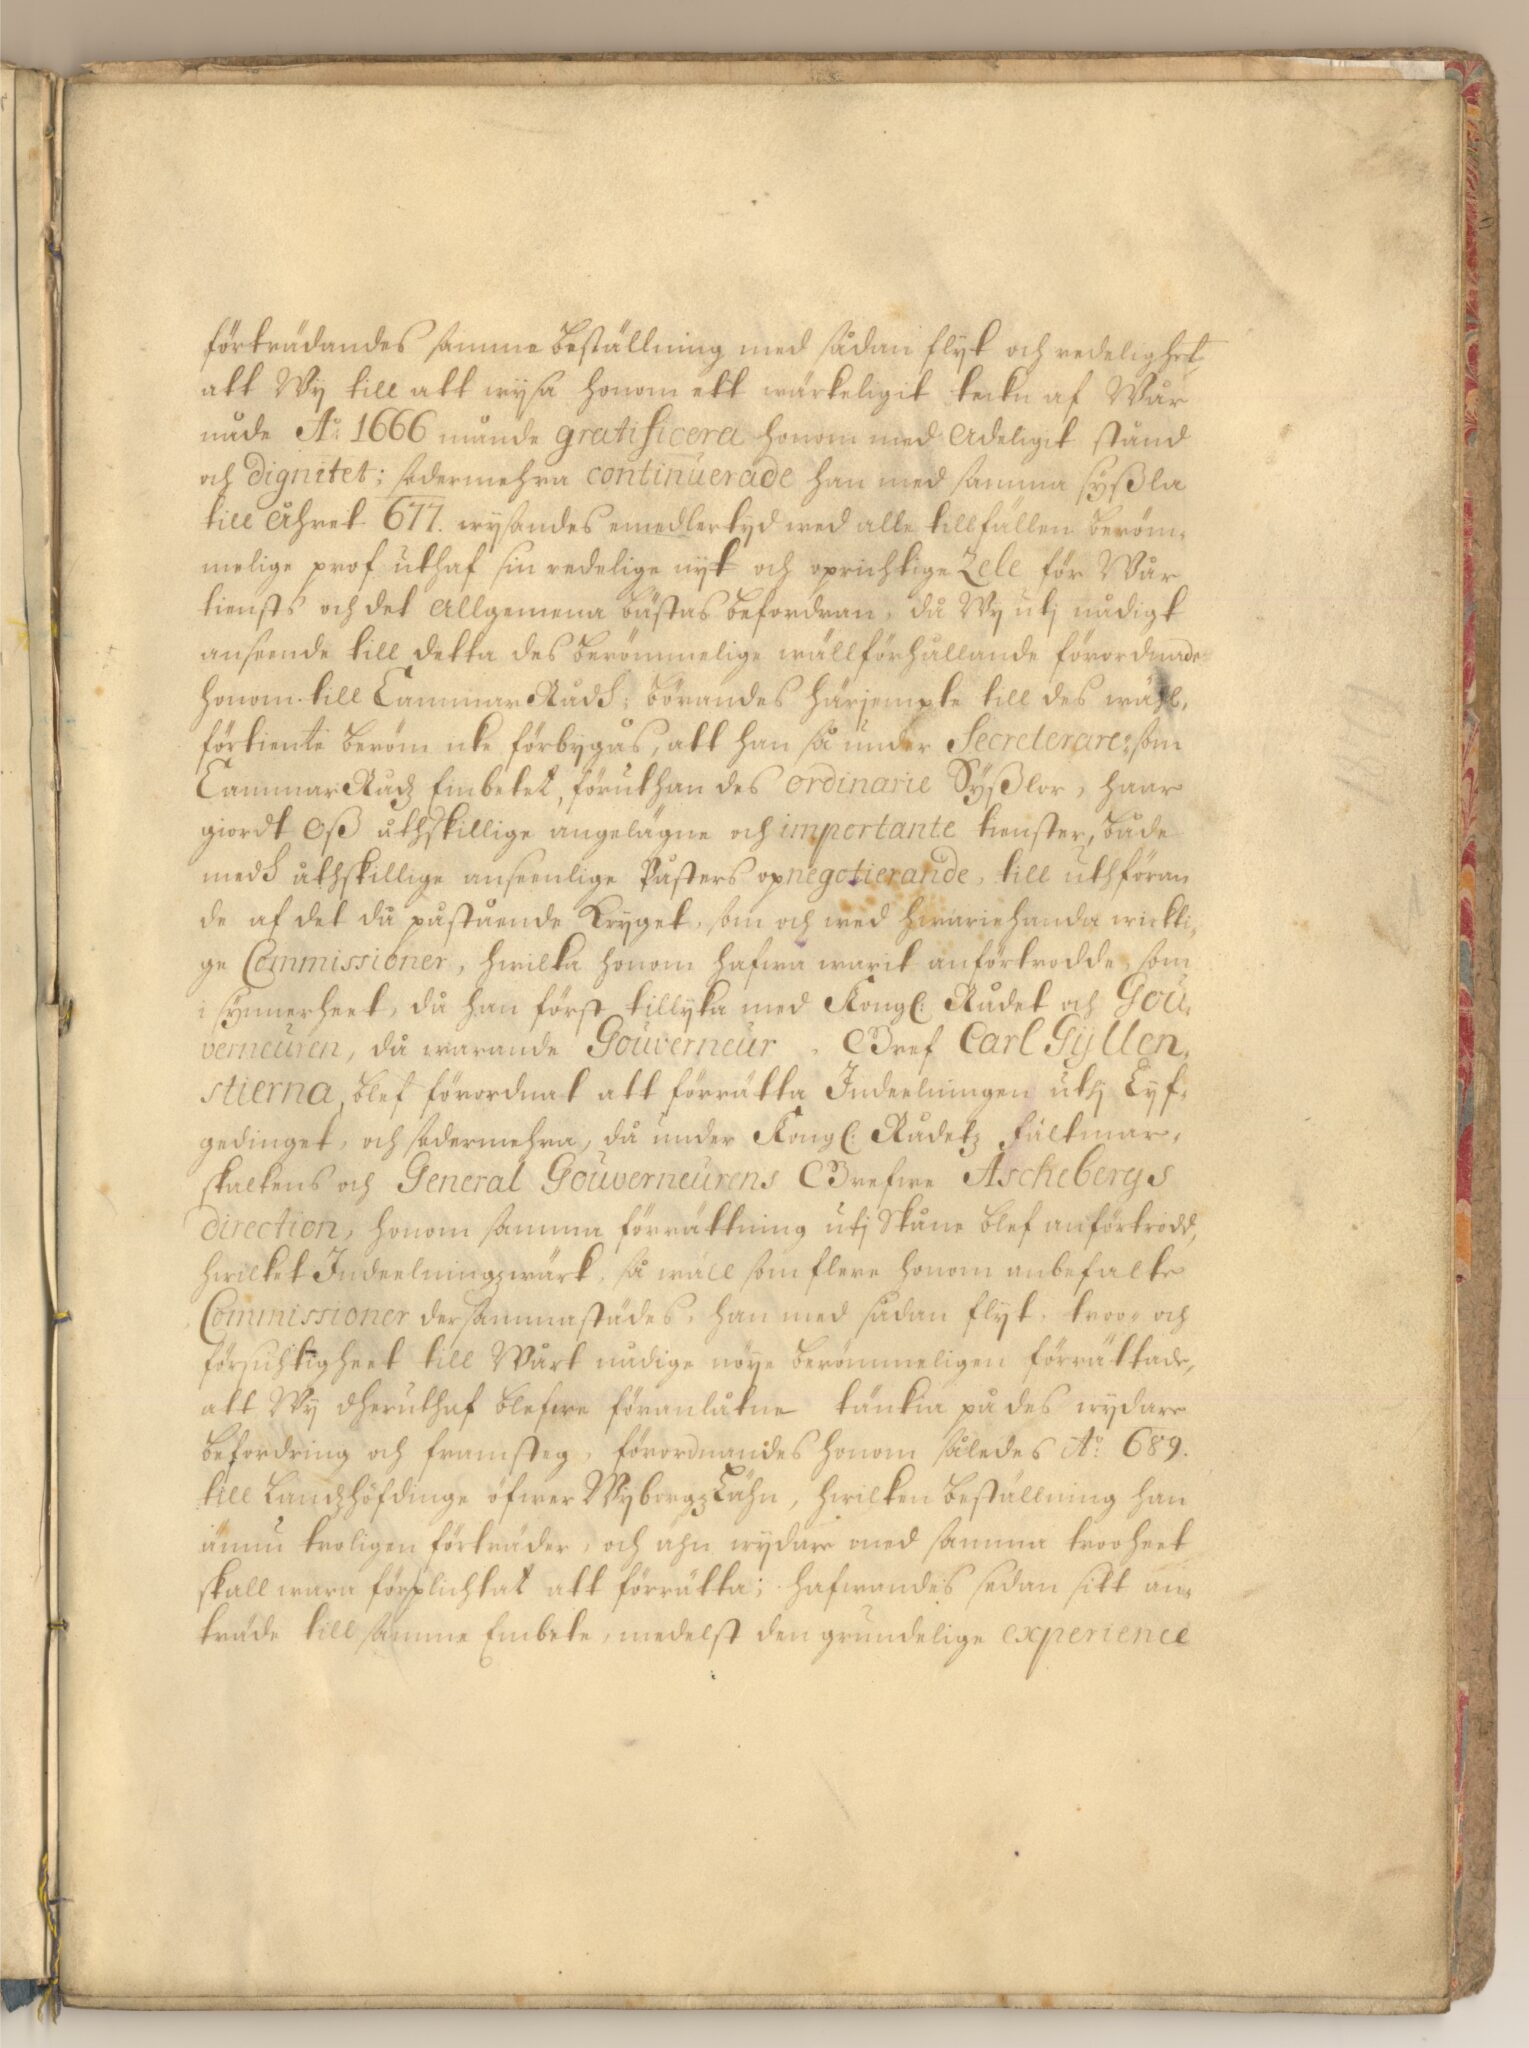 förträdandes samme beställning med sådan flyt och redelighet
att Wy till att wysa honom ett wärkeligit teckn af Wår
nåde A:o 1666 månde gratificera honom med adeligit stånd
och dignitet; sedermehra continuerade han med samma syßla
till åhret 677. wysandes emedlertyd wed alle tillfällen beröm-
melige prof uthaf sin redelige nyt och oprichtige Zele för Wår
tiensts och det allgemena bästas befordran, då Wy utj nådigt
anseende till detta des berömmelige wällförhållande förordnade
honom till Cammar Rådh; börandes härjempte till des wähl-
förtiente beröm icke förbygås, att han så under Secreterare- som
Cammar Rådz Embetet, föruthan des ordinarie Syßlor, haar
giordt Oß åthskillige angelägne och importante tienster, både
medh åthskillige anseenlige Påsters opnegotierande, till uthföran
de af det då påstående Kryget, som och wed hwariehanda wickti-
ge Commissioner, hwilka honom hafwa warit anförtrodde, som
i synnerheet, då han först tillyka med Kongl. Rådet och Gou-
verneuren, då warande Gouverneur, Gref Carl Gyllen-
stierna, blef förordnat att förrätta Indeelningen uthj Lyf-
gedinget, och sedermehra, då under Kongl. Rådetz Fältmar-
skalkens och General Gouverneurens Grefwe Aschebergs
direction, honom samma förrättning utj Skåne blef anförtrodd,
hwilket Indeelningzwärk, så wäll som flere honom anbefalte
Commissioner dersammastädes, han med sådan flyt, troo- och
försichtigheet till Wårt nådige nöye berömmeligen förrättade,
att Wy dheruthaf blefwe föranlåtne tänkia på des wydare
befordring och framsteg, förordnandes honom således A:o 689.
till Landzhöfdinge öfwer WyborgzLähn, hwilken beställning han
ännu troligen förträder, och ahn wydare med samma trooheet
skall wara förplichtat att förrätta; hafwandes sedan sitt an-
träde till samme Embete, medelst den grundelige experience